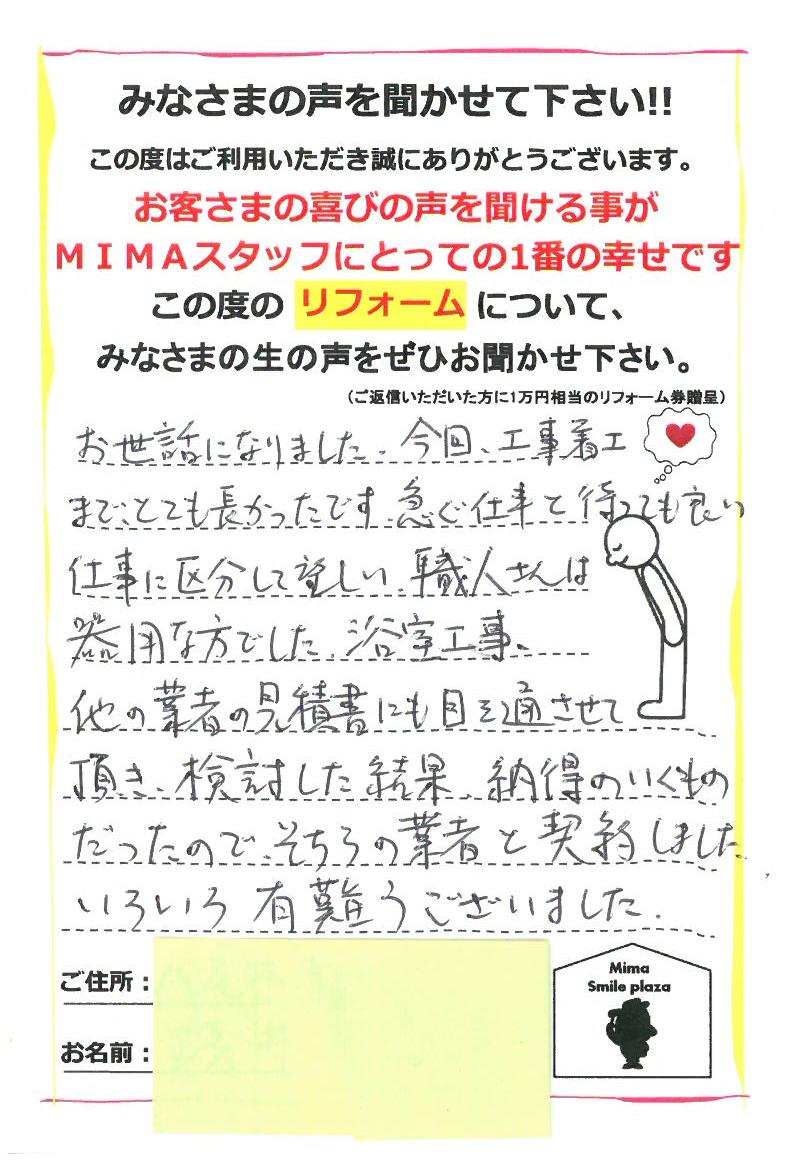 みなさまの声を聞かせて下さい!!
この度はご利用いただき誠にありがとうございます。
お客さまの喜びの声を聞ける事が
ＭＩＭＡスタッフにとっての1番の幸せです
この度の リフォーム について、
みなさまの生の声をぜひお聞かせ下さい。
（ご返信いただいた方に1万円相当のリフォーム券贈呈）
お世話になりました。今回、工事着工
まで、とても長かったです。急ぐ仕事と待っても良い
仕事に区分して望しい。職人さんは
器用な方でした。浴室工事、
他の業者の見積書にも目を通させて
頂き、検討した結果、納得のいくもの
だったので、そちらの業者と契約しました。
いろいろ有難うございました。
ご住所：
お名前：
Mima
Smile plaza